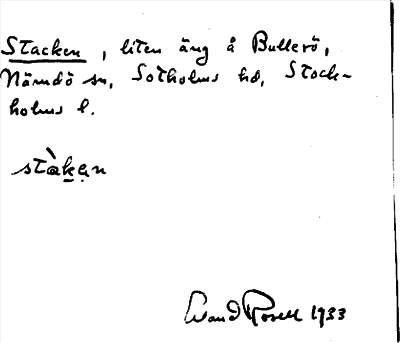 Stacken, liten äng å Bullerö,
Nämdö sn, Sotholms hd, Stock-
holms l.
stàkẹn
Evand Rosell 1933